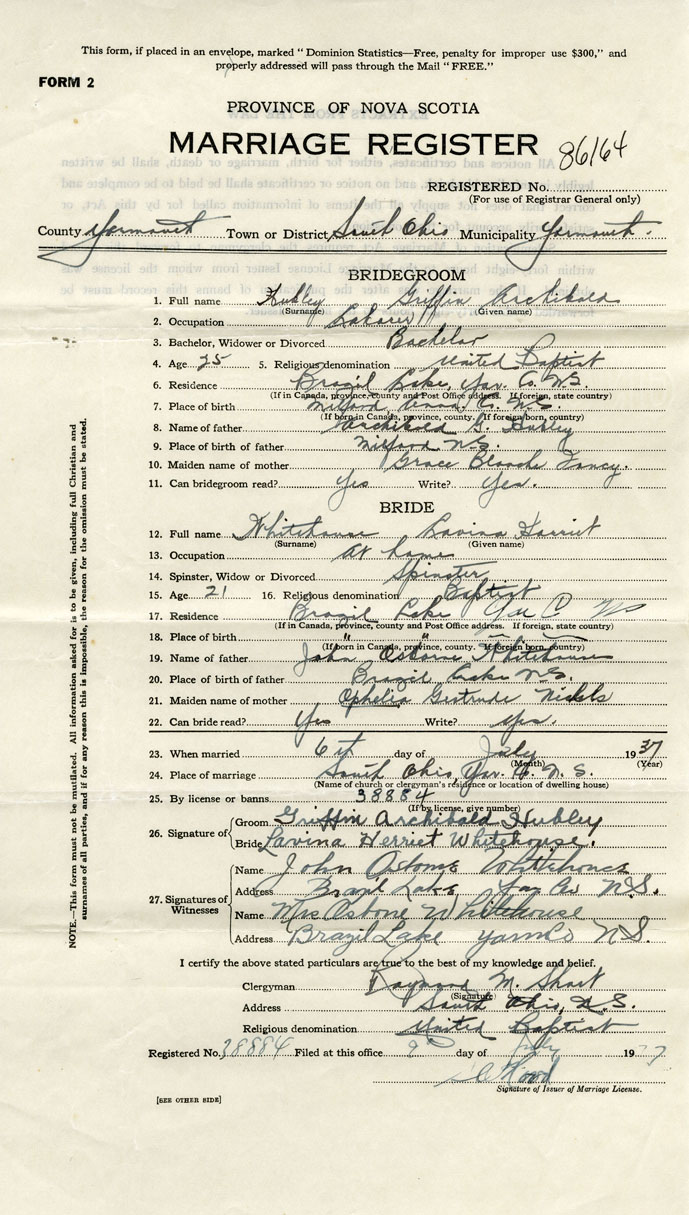 This form, if placed in an envelope, marked "Dominion Statistics—Free, penalty for improper use $300," and
properly addressed will pass through the Mail "FREE."
FORM 2
PROVINCE OF NOVA SCOTIA
MARRIAGE REGISTER 86164
REGISTERED No.
(For use of Registrar General only)
County Yarmouth Town or District South Ohio Municipality Yarmouth.
BRIDEGROOM
1. Full name Hubley Griffin Archibald
(Surname) (Given name)
2. Occupation Laborer
3. Bachelor, Widower or Divorced Bachelor
4. Age 25 5. Religious denomination United Baptist
6. Residence Brazil Lake, Yar. Co. N.S.
(If in Canada, province, county and Post Office address. If foreign, state country)
7. Place of birth Milford N.S.
(If born in Canada, province, county. If foreign born, country)
8. Name of father Archibald G. Hubley
9. Place of birth of father Milford N.S.
10. Maiden name of mother Grace Blanche Fancy.
11. Can bridegroom read? Yes Write? Yes.
BRIDE
12. Full name Whitehouse Lavina Harriet
(Surname) (Given name)
13. Occupation At home
14. Spinster, Widow or Divorced Spinster
15. Age 21 16. Religious denomination Baptist
17. Residence Brazil Lake Yar C NS
(If in Canada, province, county and Post Office address. If foreign, state country)
18. Place of birth " "
(If born in Canada, province, county. If foreign born, country)
19. Name of father John Osborne Whitehouse
20. Place of birth of father Brazil Lake N.S.
21. Maiden name of mother Ophelia Gertrude Nickels
22. Can bride read? Yes Write? Yes.
23. When married 6th day of July 1937
(Month) (Year)
24. Place of marriage South Ohio, Yar. Co. N. S.
(Name of church or clergyman's residence or location of dwelling house)
25. By license or banns 38884
(If by license, give number)
26. Signature of Groom Griffin Archibald Hubley
Bride Lavina Herriet Whitehouse.
27. Signatures of Witnesses Name John Osbone Whitehouse
Address Brazil Lake Yar Co N.S.
Name Mrs Osbone Whitehouse
Address Brazil Lake Yarm Co N.S.
I certify the above stated particulars are true to the best of my knowledge and belief.
Clergyman Raymond M. Short
(Signature)
Address South Ohio, N.S.
Religious denomination United Baptist
Registered No. 38884 Filed at this office 9th day of July 1937
Signature of Issuer of Marriage License.
[SEE OTHER SIDE]
NOTE.—This form must not be mutilated. All information asked for is to be given, including full Christian and
surnames of all parties, and if for any reason this is impossible, the reason for the omission must be stated.